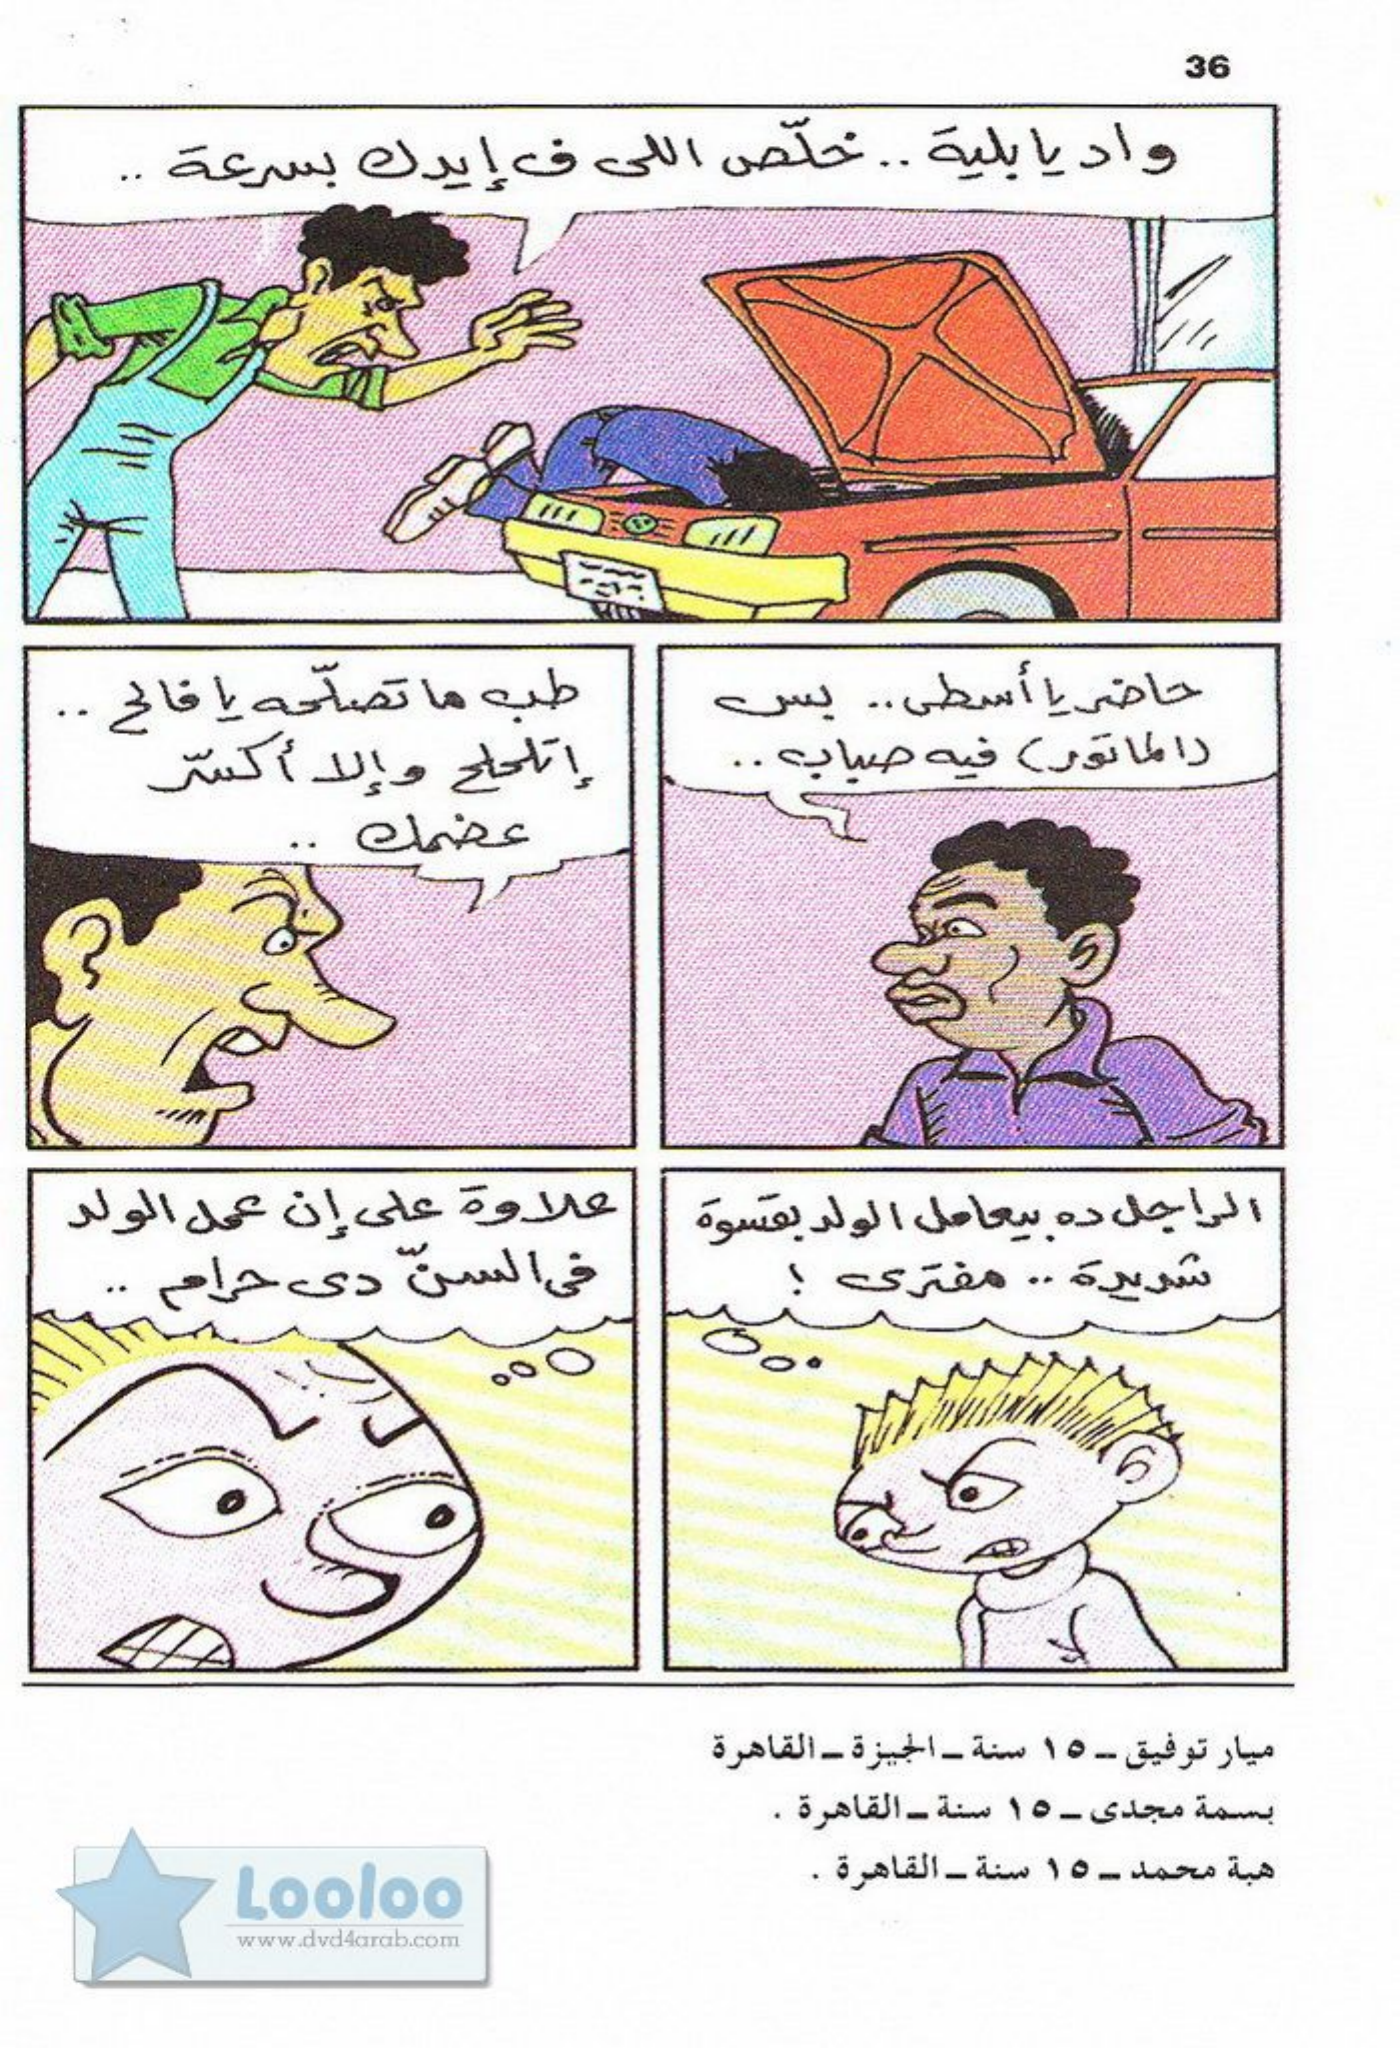 36
واد يا بلية .. خلّص اللى ف إيدك بسرعة ..
حاضر يا أسطى .. بس
(الماتور) فيه صباب ..
طب ما تصلّحه يا فالح ..
إتلحلح وإلا أكسّر
عضمك ..
الراجل ده بيعامل الولد بقسوة
شديدة .. مفترى !
علاوة على إن عمل الولد
فى السنّ دى حرام ..
ميار توفيق ــ ١٥ سنة ــ الجيزة ــ القاهرة
بسمة مجدى ــ ١٥ سنة ــ القاهرة .
هبة محمد ــ ١٥ سنة ــ القاهرة .
Looloo
www.dvd4arab.com